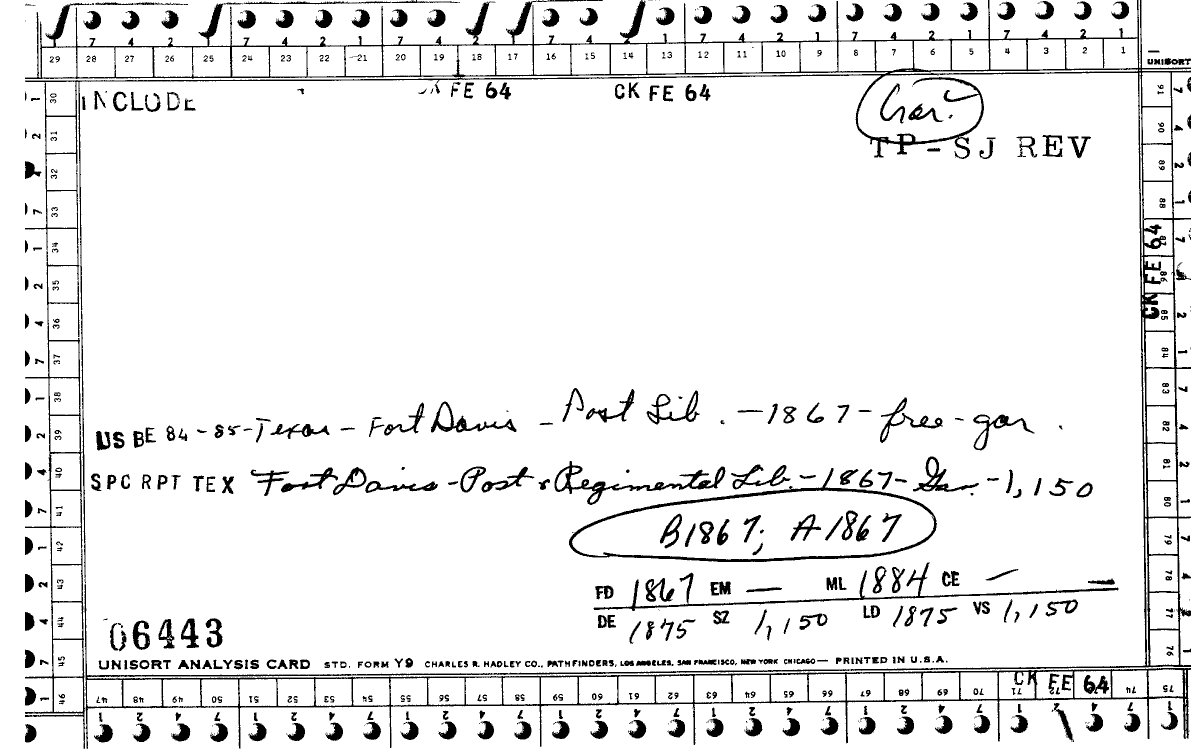 7 4 2 1 7 4 2 1 7 4 2 1 7 4 2 1 7 4 2 1 7 4 2 1 7 4 2 1
29 28 27 26 25 24 23 22 21 20 19 18 17 16 15 14 13 12 11 10 9 8 7 6 5 4 3 2 1
UNISORT
INCLUDE CK FE 64 CK FE 64
Gar.
TP-SJ REV
CK FE 64
US BE 84-85-Texas-Fort Davis-Post Lib.-1867-free-gar.
SPC RPT TEX Fort Davis-Post & Regimental Lib.-1867-Gar.-1,150
B1867; A1867
FD 1867 EM — ML 1884 CE — —
DE 1875 SZ 1,150 LD 1875 VS 1,150
06443
UNISORT ANALYSIS CARD STD. FORM Y9 CHARLES R. HADLEY CO., PATHFINDERS, LOS ANGELES, SAN FRANCISCO, NEW YORK CHICAGO — PRINTED IN U.S.A.
CK FE 64
30 31 32 33 34 35 36 37 38 39 40 41 42 43 44 45 46
47 48 49 50 51 52 53 54 55 56 57 58 59 60 61 62 63 64 65 66 67 68 69 70 71 72 73 74 75
76 77 78 79 80 81 82 83 84 85 86 87 88 89 90 91